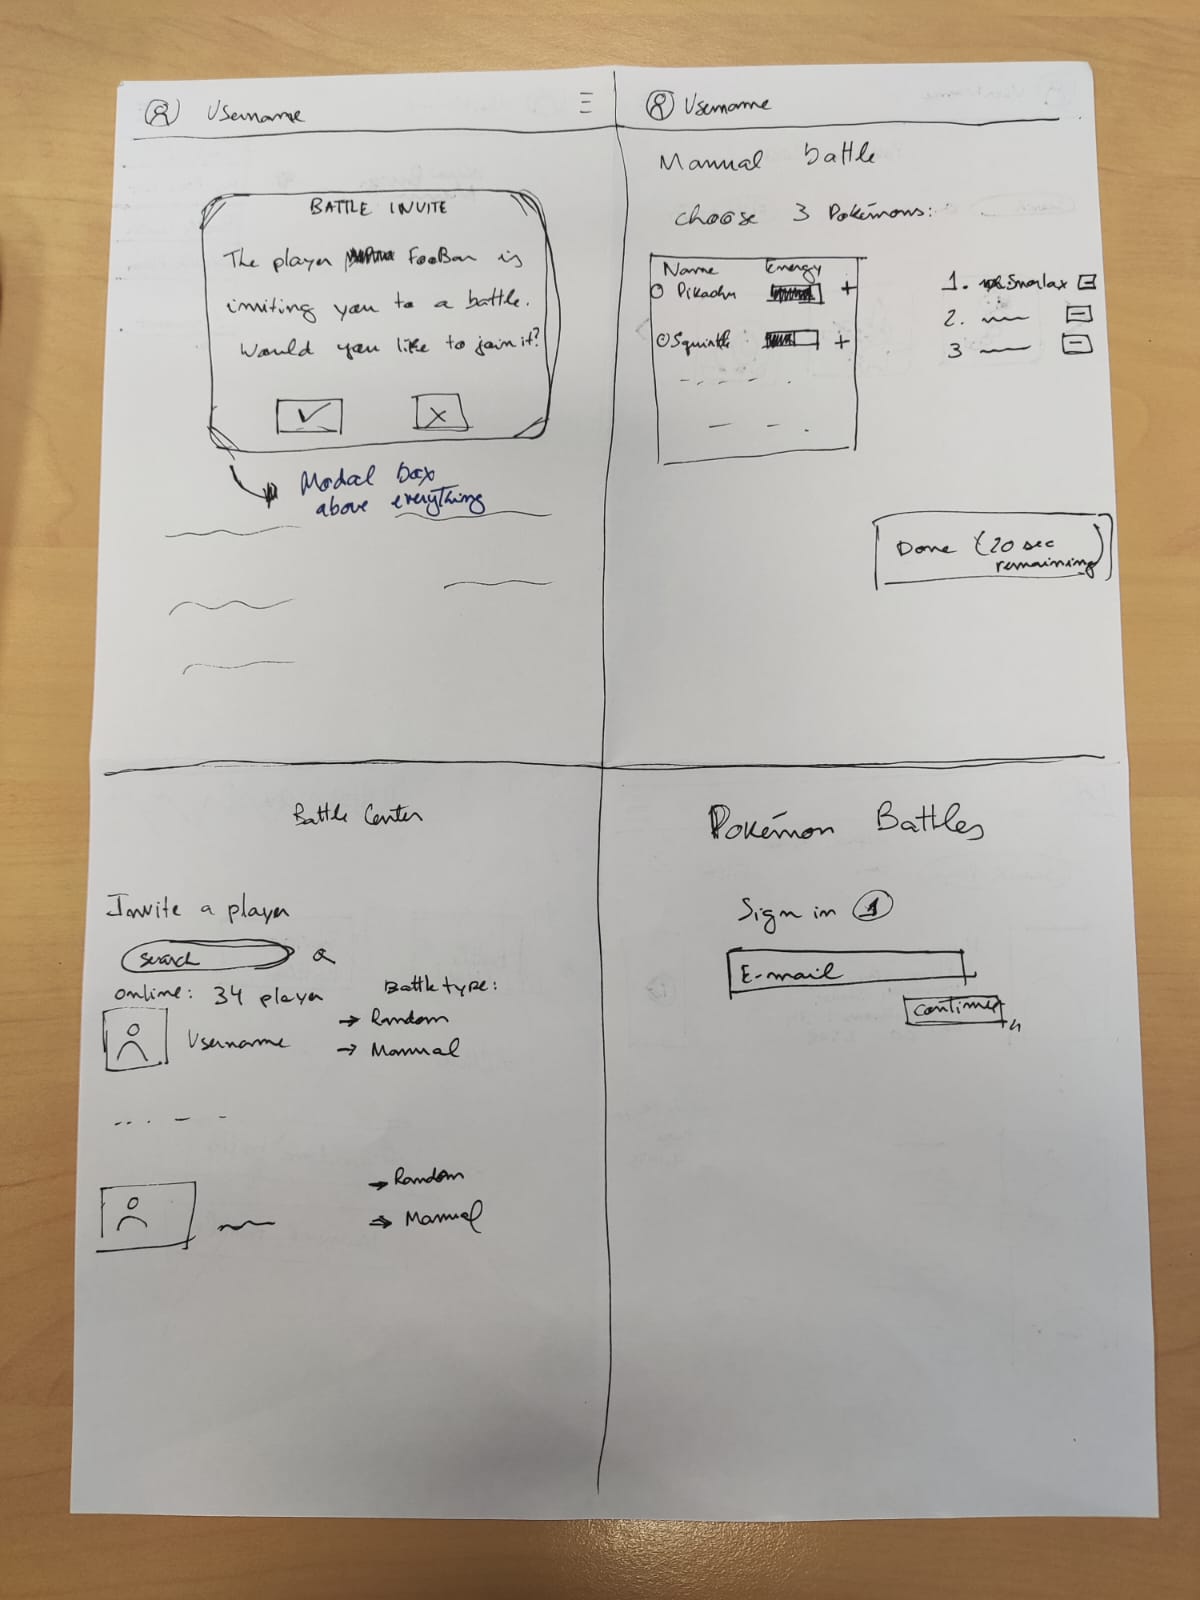 Username
BATTLE INVITE
The player FooBar is
inviting you to a battle.
Would you like to join it?
Modal box
above everything
Username
Manual battle
choose 3 Pokémons:
Name Energy
Pikachu +
Squirtle +
1. Snorlax -
2. -
3 -
Done (20 sec
remaining)
Battle Center
Invite a player
search
online: 34 player
Battle type:
Username
→ Random
→ Manual
→ Random
→ Manual
Pokémon Battles
Sign in 1
E-mail
Continue